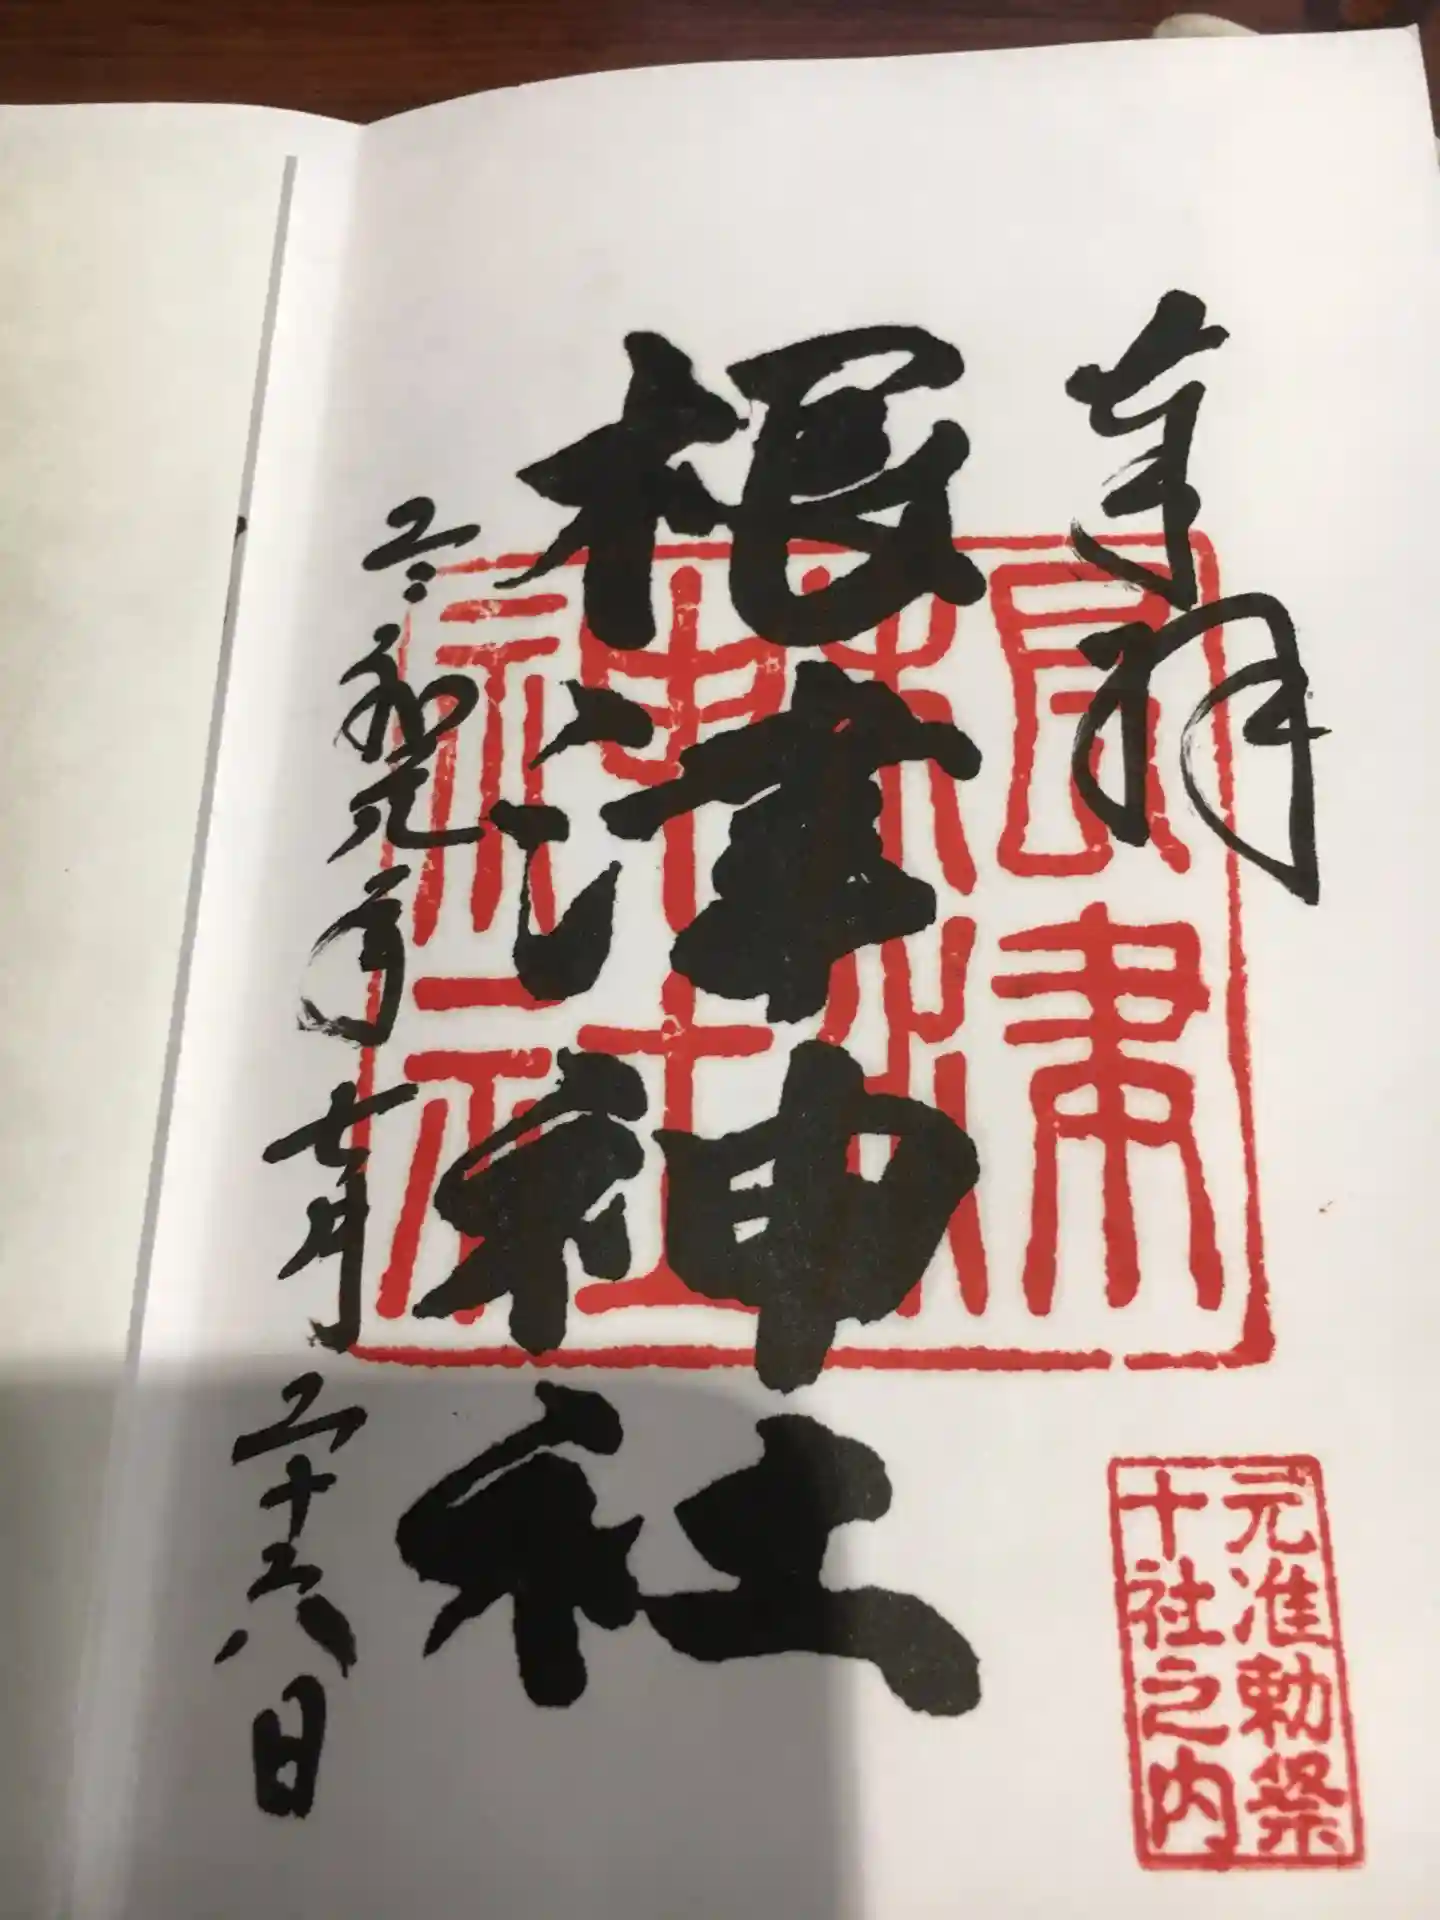 奉拝
根津神社
根津
神社
元准勅祭
十社之内
令和元年七月二十六日